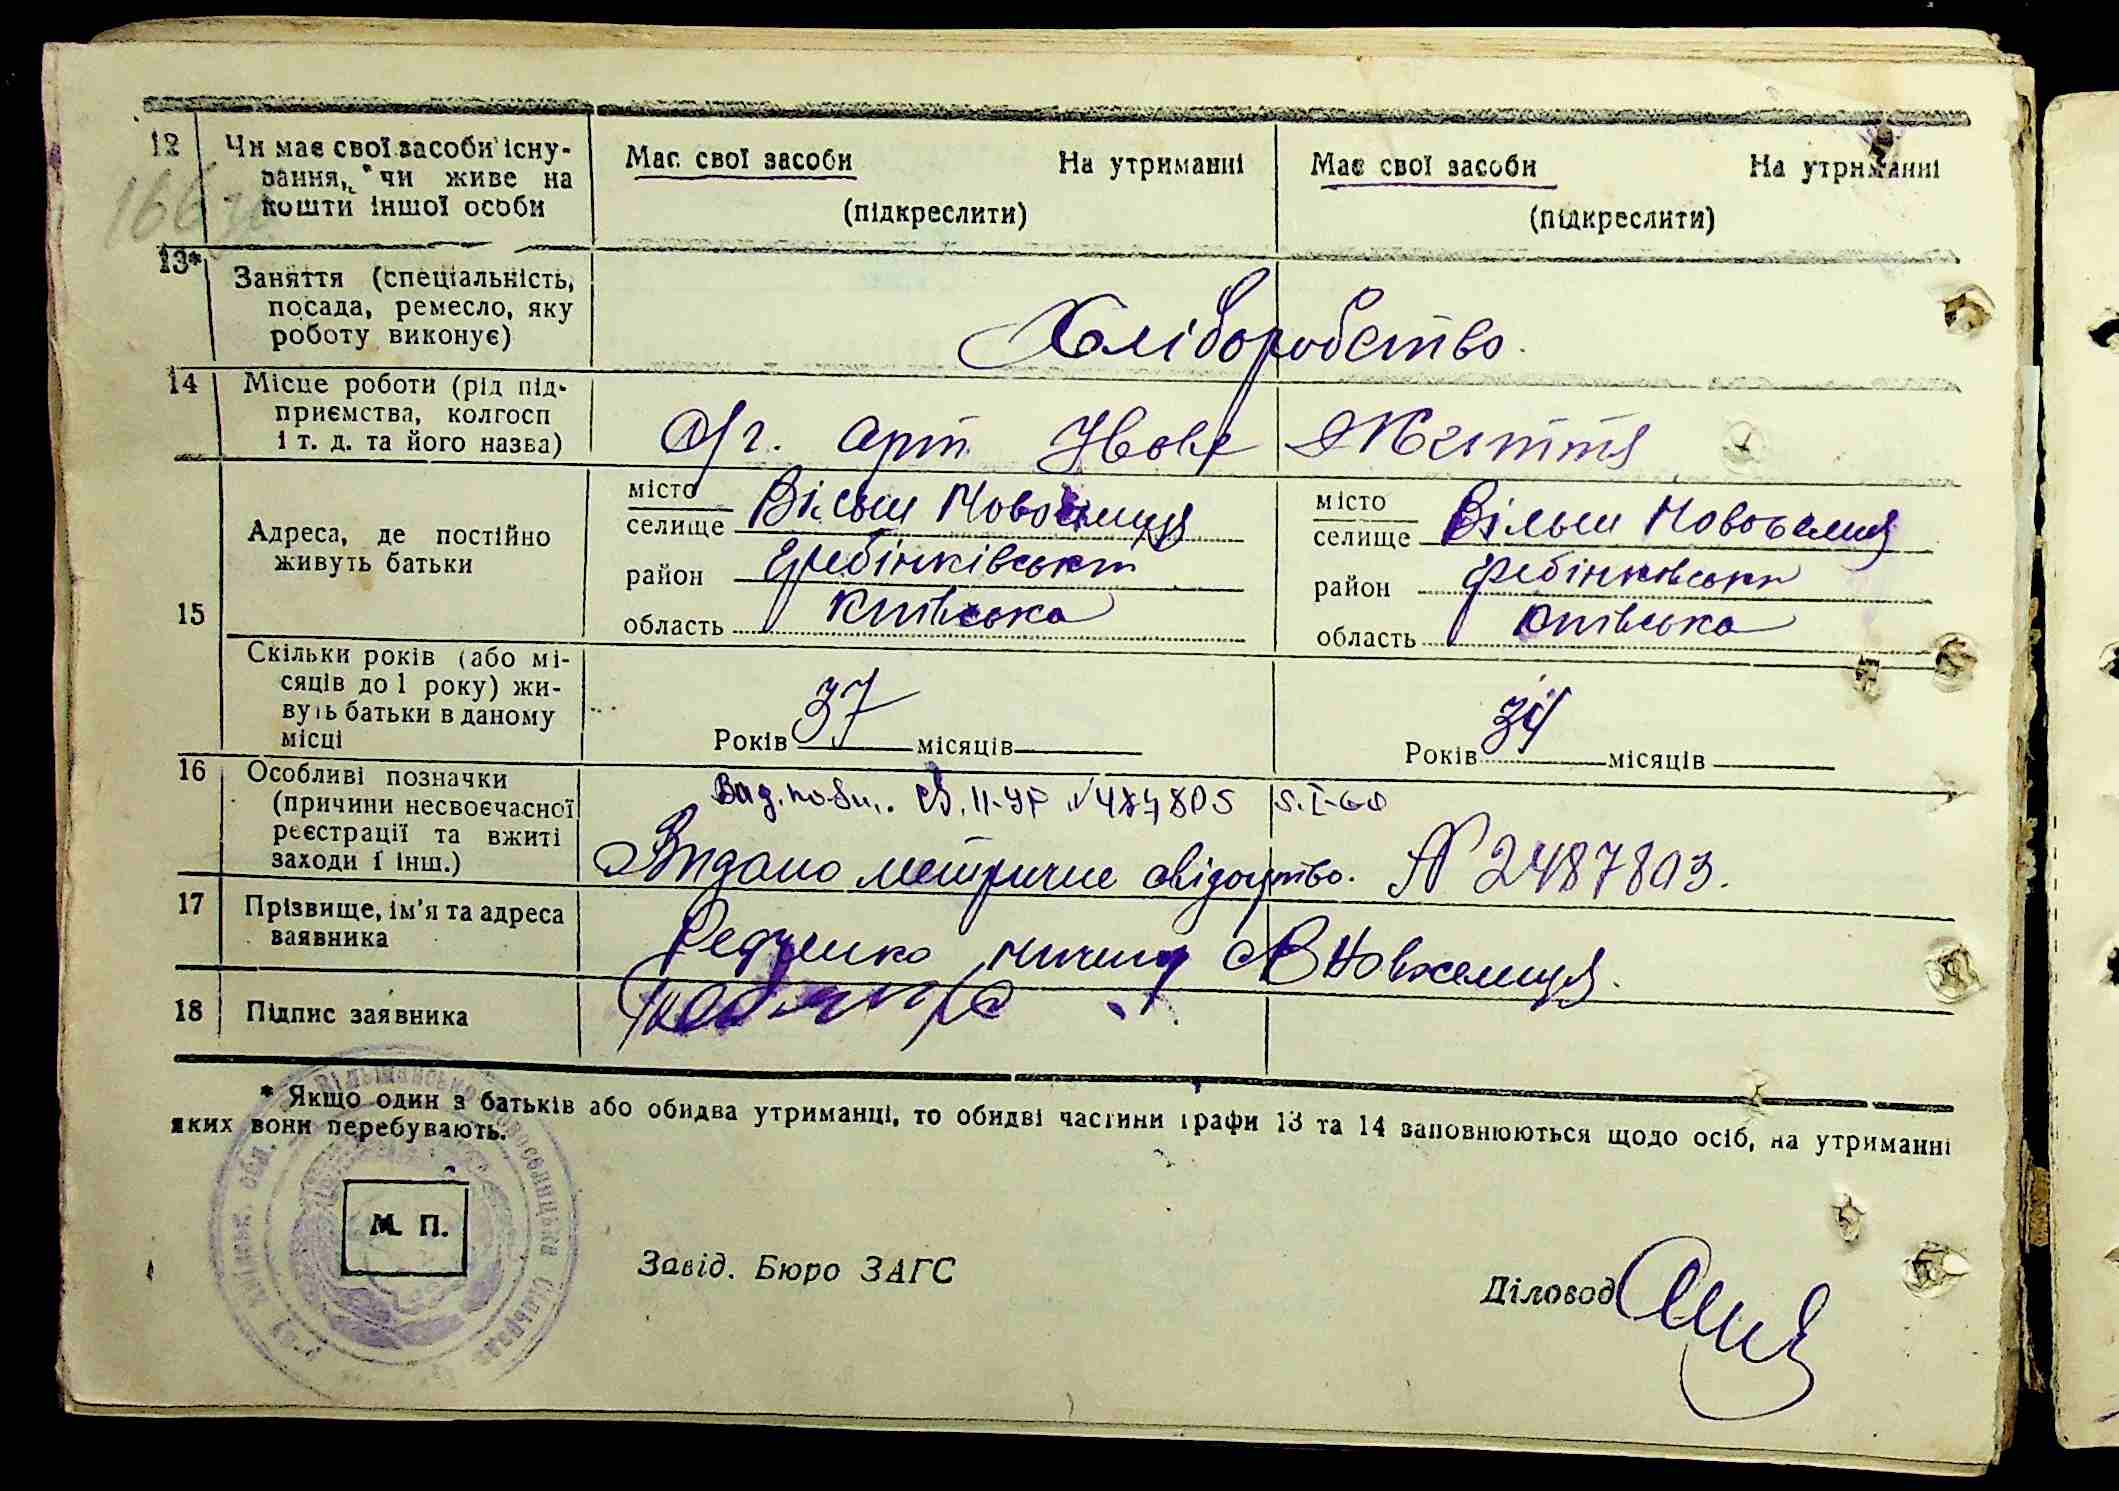 12 Чи має свої засоби існу-
вання, чи живе на
кошти іншої особи
Має свої засоби На утриманні
(підкреслити)
Має свої засоби На утриманні
(підкреслити)
166
13* Заняття (спеціальність,
посада, ремесло, яку
роботу виконує)
Хліборобство
14 Місце роботи (рід під-
приємства, колгосп
і т. д. та його назва)
арт Нове Життя
15 Адреса, де постійно
живуть батьки
місто
селище Вільш Новоселиця
район Гребінківськи
область Київська
місто
селище Вільш Новоселиця
район Гребінківськи
область Київська
Скільки років (або мі-
сяців до 1 року) жи-
вуть батьки в даному
місці
Років 37 місяців
Років 34 місяців
16 Особливі позначки
(причини несвоєчасної
реєстрації та вжиті
заходи і інш.)
Вид. по-вт. св. II-УР № 487805 5.I-60
Видано метричне свідоцтво. № 2487803.
17 Прізвище, ім'я та адреса
заявника
Редченко с В Новоселиця.
18 Підпис заявника
* Якщо один з батьків або обидва утриманці, то обидві частини графи 13 та 14 заповнюються щодо осіб, на утриманні
яких вони перебувають.
М. П.
Завід. Бюро ЗАГС
Діловод